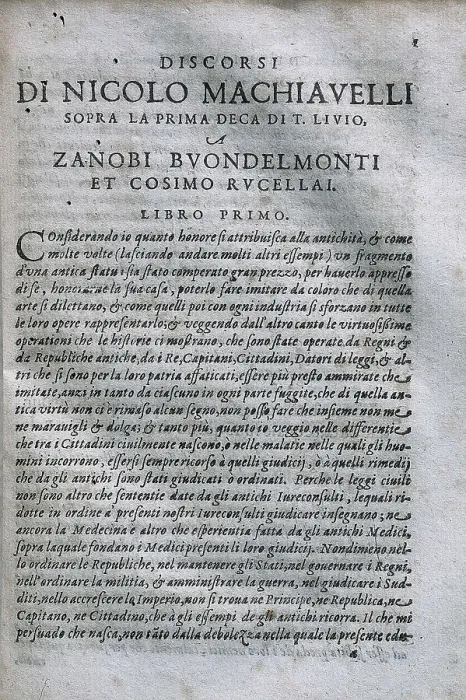 DISCORSI
DI NICOLO MACHIAVELLI
SOPRA LA PRIMA DECA DI T. LIVIO,
A
ZANOBI BVONDELMONTI
ET COSIMO RVCELLAI.
LIBRO PRIMO.
COnsiderando io quanto honore si attribuisca alla antichità, & come
molte volte (lasciando andare molti altri essempi) vn fragmento
d'vna antica statua sia stato comperato gran prezzo, per hauerlo appresso
di se, honorarne la sua casa, poterlo fare imitare da coloro che di quella
arte si dilettano, & come quelli poi con ogni industria si sforzano in tutte
le loro opere rappresentarlo; & veggendo dall'altro canto le virtuosissime
operationi che le historie ci mostrano, che sono state operate da Regni &
da Republiche antiche, da i Re, Capitani, Cittadini, Datori di leggi, & al-
tri che si sono per la loro patria affaticati, essere più presto ammirate che
imitate, anzi in tanto da ciascuno in ogni parte fuggite, che di quella an-
tica virtù non ci è rimaso alcun segno, non posso fare che insieme non me
ne marauigli & dolga; & tanto più, quanto io veggio nelle differentie
che tra i Cittadini ciuilmente nascono, o nelle malatie nelle quali gli huo-
mini incorrono, essersi sempre ricorso à quelli giudicij, ò a quelli rimedij
che da gli antichi sono stati giudicati o ordinati. Perche le leggi ciuili
non sono altro che sententie date da gli antichi Iureconsulti, lequali ri-
dotte in ordine a' presenti nostri Iureconsulti giudicare insegnano; ne
ancora la Medecina è altro che esperientia fatta da gli antichi Medici,
sopra laquale fondano i Medici presenti li loro giudicij. Nondimeno nel-
lo ordinare le Republiche, nel mantenere gli Stati, nel gouernare i Regni,
nell'ordinare la militia, & amministrare la guerra, nel giudicare i Sud-
diti, nello accrescere lo Imperio, non si troua ne Principe, ne Republica, ne
Capitano, ne Cittadino, che à gli essempi de gli antichi ricorra. Il che mi
persuado che nasca, non tãto dalla debolezza nella quale la presente edu-